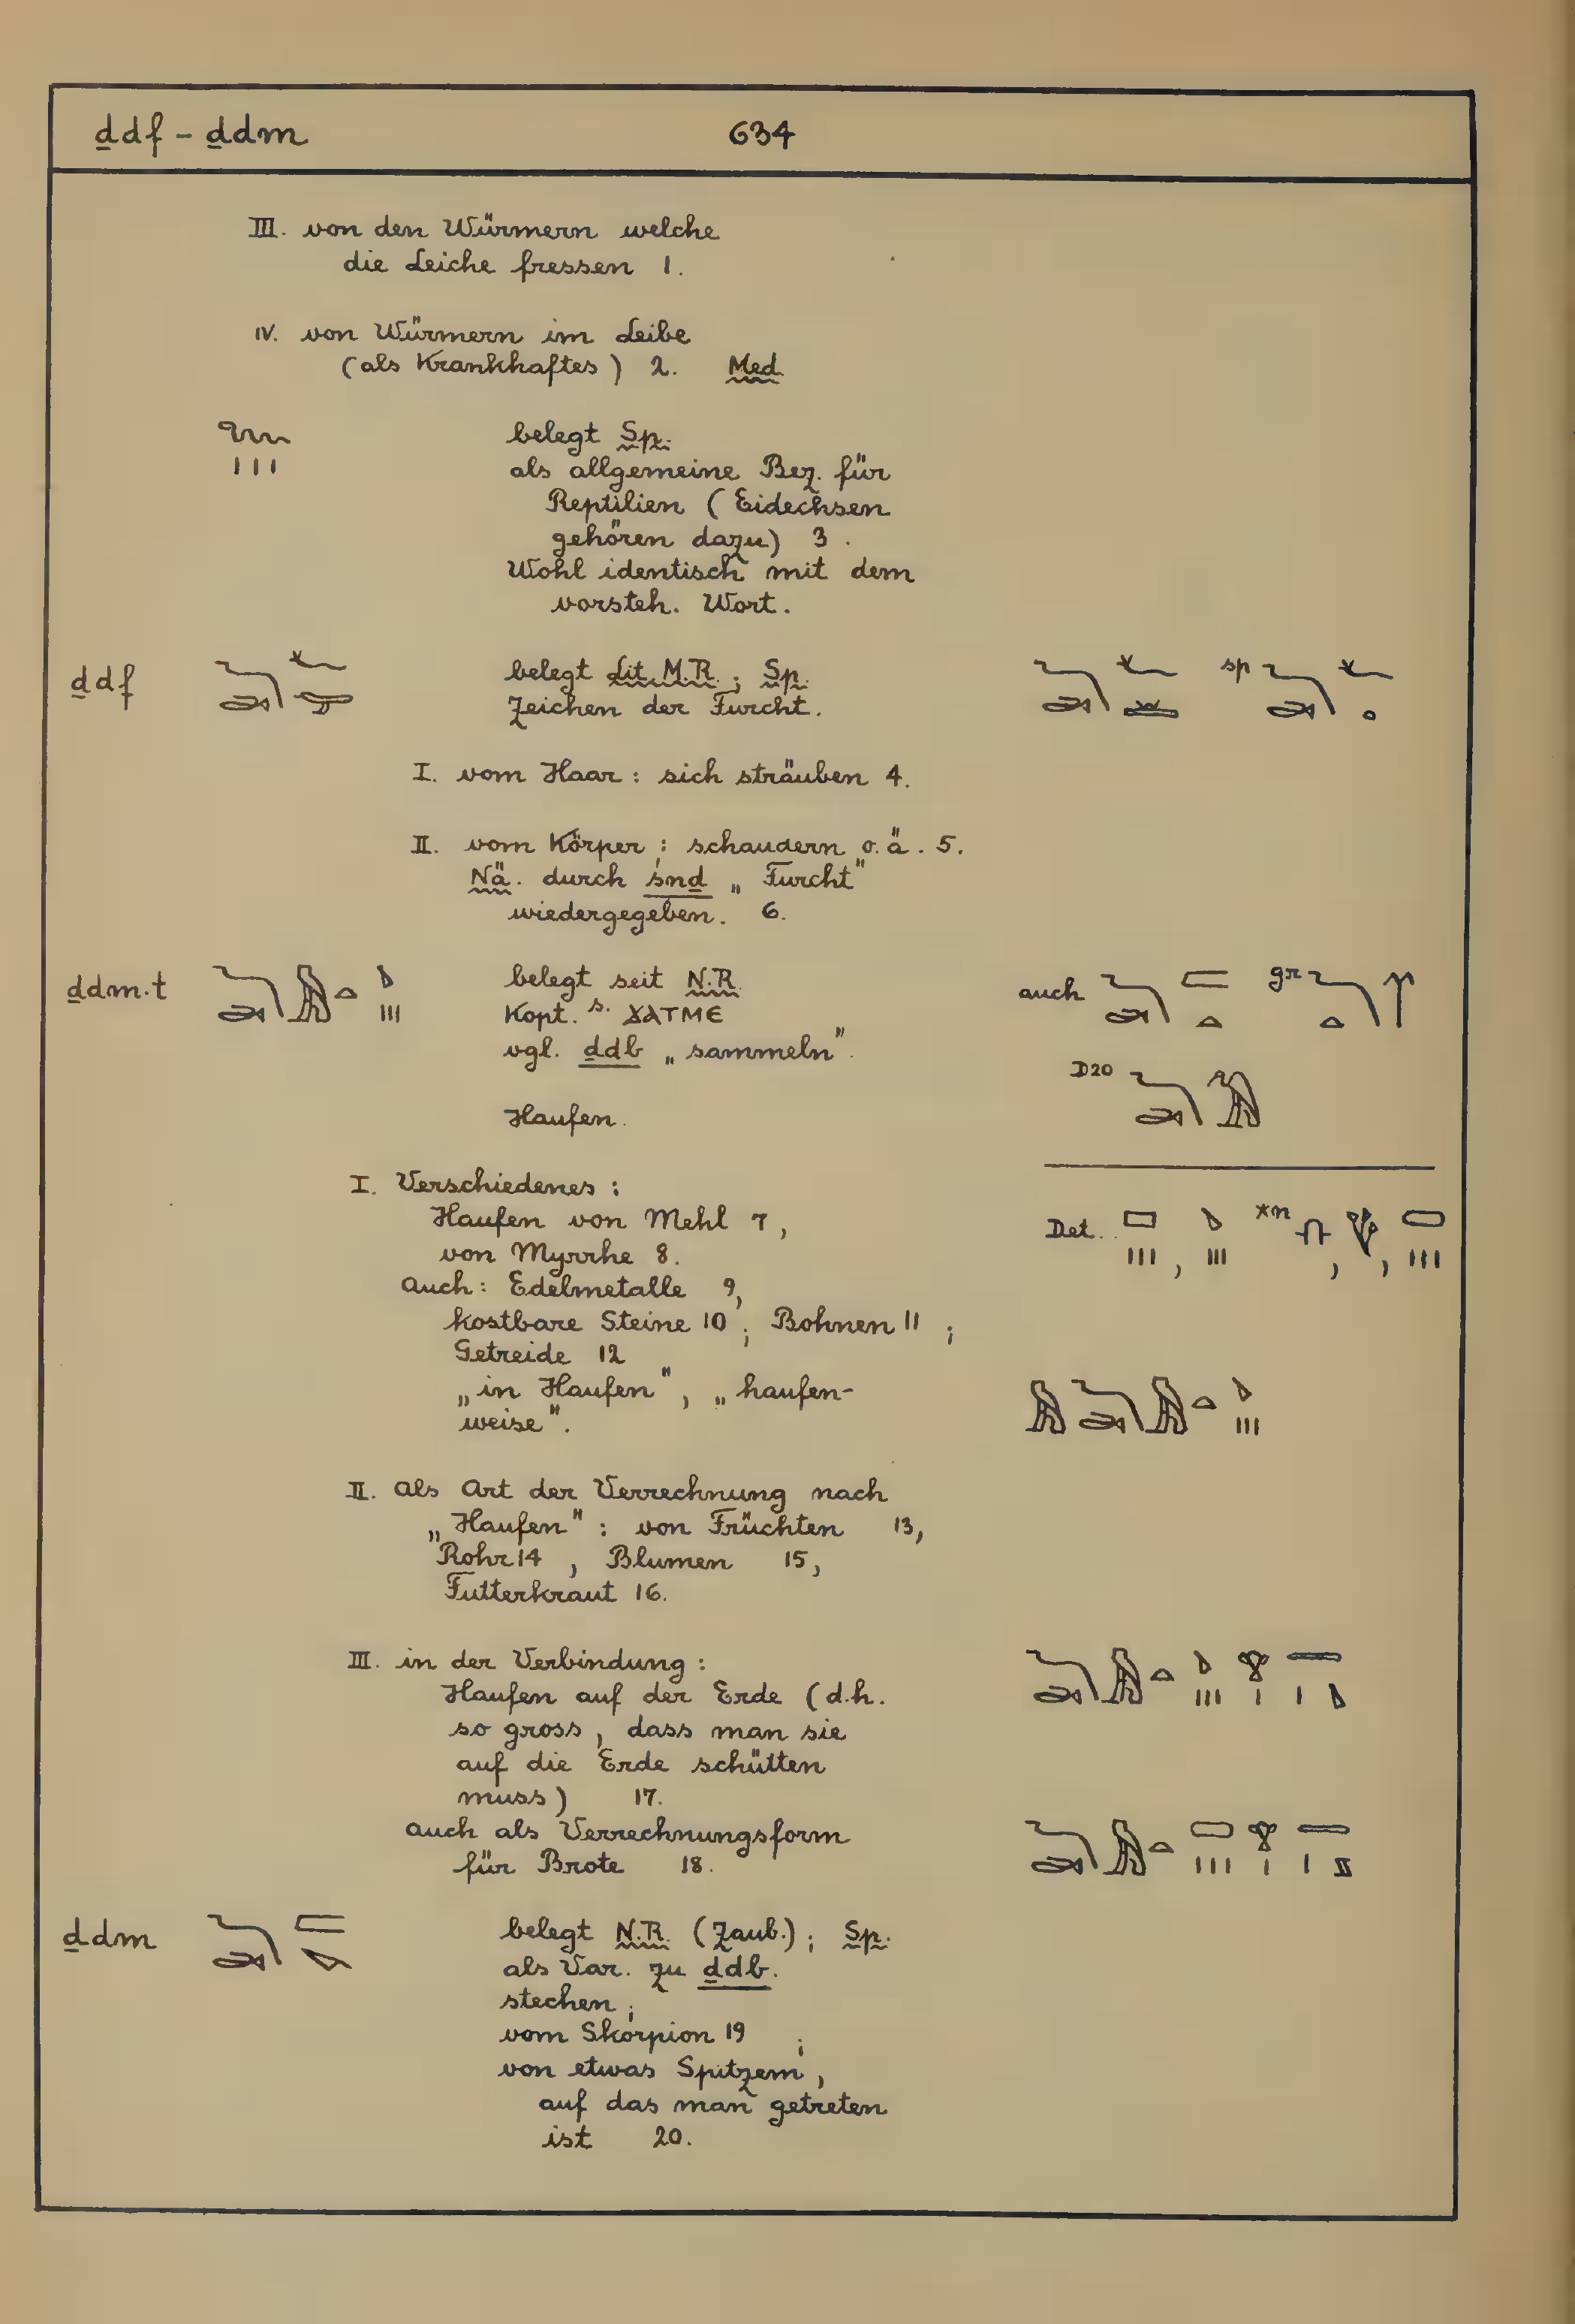 ḏdf - ḏdm 634
III. von den Würmern welche
die Leiche fressen 1.
IV. von Würmern im Leibe
(als Krankhaftes) 2. Med.
belegt Sp.
als allgemeine Bez. für
Reptilien (Eidechsen
gehören dazu) 3.
Wohl identisch mit dem
vorsteh. Wort.
ḏdf belegt Lit. M.R.; Sp. sp
Zeichen der Furcht.
I. vom Haar: sich sträuben 4.
II. vom Körper: schaudern o.ä. 5.
Nä. durch śnḏ „Furcht"
wiedergegeben. 6.
ḏdm.t belegt seit N.R. auch gr
Kopt. s. ϪⲀⲦⲘⲈ
vgl. ḏdb „sammeln".
D20
Haufen.
I. Verschiedenes:
Haufen von Mehl 7, Det. *n
von Myrrhe 8.
auch: Edelmetalle 9,
kostbare Steine 10; Bohnen 11;
Getreide 12
„in Haufen", „haufen-
weise".
II. als Art der Verrechnung nach
„Haufen": von Früchten 13,
Rohr 14, Blumen 15,
Futterkraut 16.
III. in der Verbindung:
Haufen auf der Erde (d.h.
so gross, dass man sie
auf die Erde schütten
muss) 17.
auch als Verrechnungsform
für Brote 18.
ḏdm belegt N.R. (Zaub.); Sp.
als Var. zu ḏdb.
stechen;
vom Skorpion 19;
von etwas Spitzem,
auf das man getreten
ist 20.